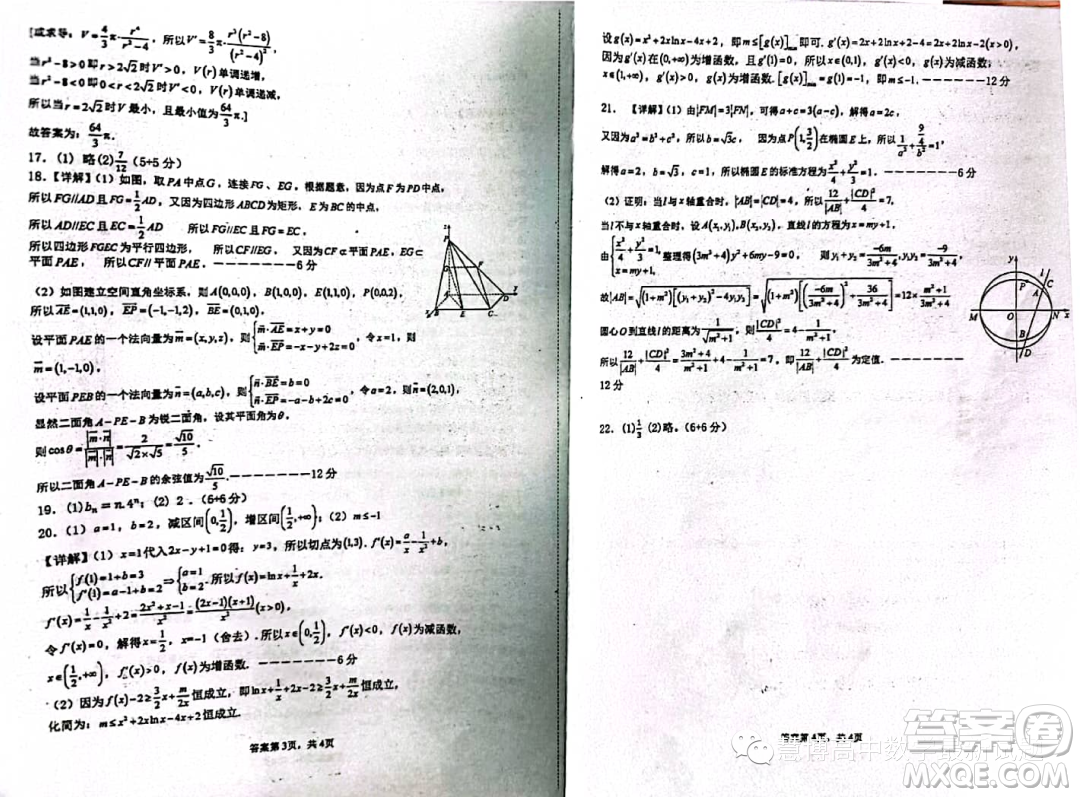 [或求导：V=4/3 π·r⁴/(r²-4)，所以V′=8/3 π·r³(r²-8)/(r²-4)²
当r²-8>0即r>2√2时V′>0，V(r)单调递增，
当r²-8<0即0<r<2√2时V′<0，V(r)单调递减，
所以当r=2√2时V最小，且最小值为64/3 π.]
故答案为：64/3 π.
17.（1）略(2) 7/12（5+5分）
18.【详解】（1）如图，取PA中点G，连接FG、EG，根据题意，因为点F为PD中点，
所以FG//AD且FG=1/2 AD，又因为四边形ABCD为矩形，E为BC的中点，
所以AD//EC且EC=1/2 AD 所以FG//EC且FG=EC，
所以四边形FGEC为平行四边形， 所以CF//EG， 又因为CF⊄平面PAE，EG⊂
平面PAE， 所以CF//平面PAE，--------6分
（2）如图建立空间直角坐标系，则A(0,0,0)，B(1,0,0)，E(1,1,0)，P(0,0,2)，
所以AE=(1,1,0)，EP=(-1,-1,2)，BE=(0,1,0)，
设平面PAE的一个法向量为m=(x,y,z)，则{m·AE=x+y=0 m·EP=-x-y+2z=0，令x=1，则
m=(1,-1,0)，
设平面PEB的一个法向量为n=(a,b,c)，则{n·BE=b=0 n·EP=-a-b+2c=0，令a=2，则n=(2,0,1)，
显然二面角A-PE-B为锐二面角，设其平面角为θ，
则cosθ=|m·n|/|m|·|n|=2/(√2×√5)=√10/5，
所以二面角A-PE-B的余弦值为√10/5.--------12分
19.（1)bₙ=n.4ⁿ；（2）2．（6+6分）
20.（1）a=1，b=2，减区间(0,1/2)，增区间(1/2,+∞)；（2）m≤-1
【详解】（1）x=1代入2x-y+1=0得：y=3，所以切点为(1,3).f′(x)=a/x-1/x²+b，
所以{f(1)=1+b=3 f′(1)=a-1+b=2⇒{a=1 b=2.所以f(x)=lnx+1/x+2x，
f′(x)=1/x-1/x²+2=(2x²+x-1)/x²=(2x-1)(x+1)/x²(x>0)，
令f′(x)=0，解得x=1/2，x=-1（舍去）.所以x∈(0,1/2)，f′(x)<0，f(x)为减函数，
x∈(1/2,+∞)，f′(x)>0，f(x)为增函数.--------6分
（2）因为f(x)-2≥3/2 x+m/2x恒成立，即lnx+1/x+2x-2≥3/2 x+m/2x恒成立，
化简为：m≤x²+2xlnx-4x+2恒成立.
答案第3页，共4页
设g(x)=x²+2xlnx-4x+2，即m≤[g(x)]min即可. g′(x)=2x+2lnx+2-4=2x+2lnx-2(x>0)，
因为g′(x)在(0,+∞)为增函数，且g′(1)=0，所以x∈(0,1)，g′(x)<0，g(x)为减函数，
x∈(1,+∞)，g′(x)>0，g(x)为增函数.[g(x)]min=g(1)=-1，即m≤-1.------12分
21. 【详解】（1）由|FM|=3|FN|，可得a+c=3(a-c)，解得a=2c，
又因为a²=b²+c²，所以b=√3c， 因为点P(1,3/2)在椭圆E上，所以1/a²+(9/4)/b²=1，
解得a=2，b=√3，所以椭圆E的标准方程为x²/4+y²/3=1.--------6分
（2）证明，当l与x轴重合时，|AB|=|CD|=4，所以12/|AB|+|CD|²/4=7，
当l不与x轴重合时，设A(x₁,y₁),B(x₂,y₂)，直线l的方程为x=my+1，
由{x²/4+y²/3=1 x=my+1，整理得(3m²+4)y²+6my-9=0， 则y₁+y₂=-6m/(3m²+4)，y₁y₂=-9/(3m²+4)，
故|AB|=√((1+m²)[(y₁+y₂)²-4y₁y₂])=√((1+m²)[(-6m/(3m²+4))²+36/(3m²+4)])=12×(m²+1)/(3m²+4)，
圆心O到直线l的距离为1/√(m²+1)，则|CD|²/4=4-1/(m²+1)，
所以12/|AB|+|CD|²/4=(3m²+4)/(m²+1)+4-1/(m²+1)=7，即12/|AB|+|CD|²/4为定值．--------
12分
22.（1)1/3（2)略，（6+6分）
答案第4页，共4页
慧博高中数学
答案圈
MXQE.COM